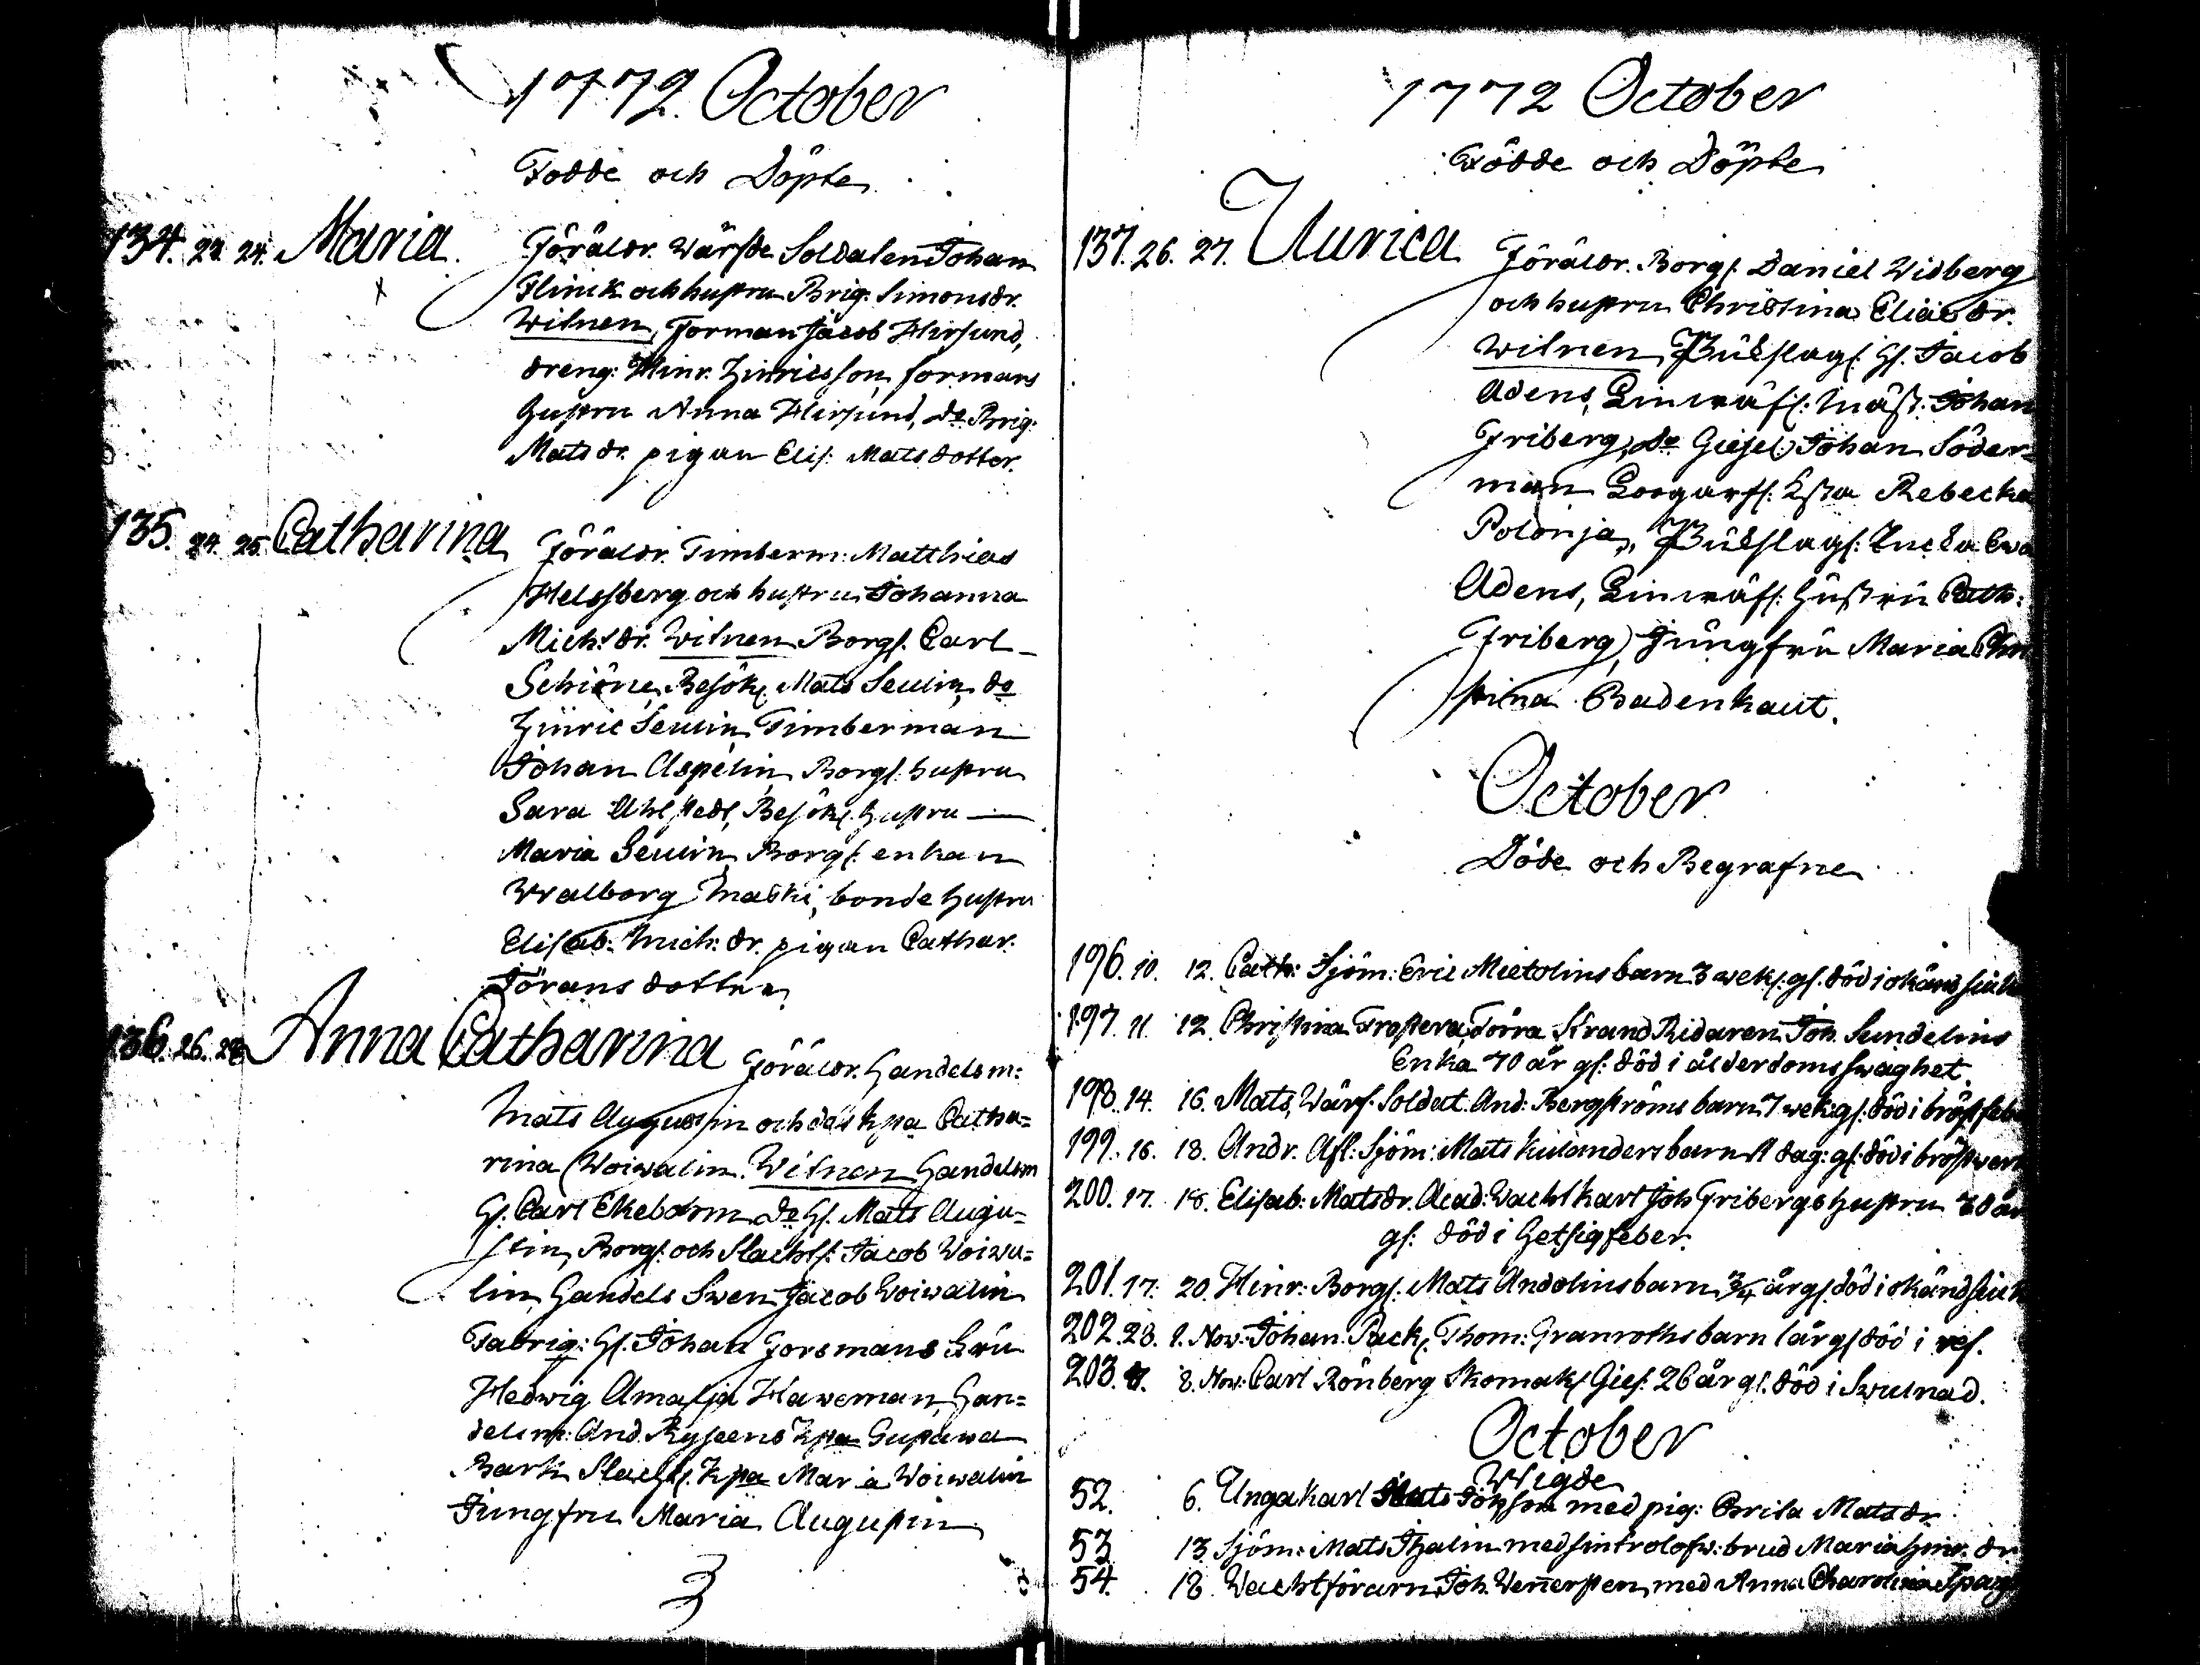 1772. October
Födde och Döpte
134. 23. 24. Maria. Föräldr. Wärfde Soldaten Johan
Flinck och hustru Brig: Simonsdr.
Witnen, Forman Jacob Hirsund,
dreng: Hinr. Hinricsson, formans
hustru Anna Hirsund, do Brig:
Mats dr. pigan Elis: Mats dotter.
135. 24. 25. Catharina Föräldr. Timberm: Matthias
Helssberg och hustru Johanna
Mich: dr. Witnen Borgs. Carl
Schiöne, Besök. Mats Seulin, do
Hinric Seulin, Timberman
Johan Aspelin, Borgs. hustru
Sara Ahlstedt, Besöks. hustru
Maria Seulin, Borgs: enkan
Walborg Maski, bonde hustru
Elisab: Mich: dr. pigan Cathar.
Jörans dotter
136. 26. 28. Anna Catharina Föräldr. Handelsm:
Mats Augustin och dess k:sta Catha=
rina Woiwalin. Witnen Handelsm
H. Carl Ekebom do H. Mats Augu=
stin, Borgs. och Slachts: Jacob Woiwa=
lin, Handels Swen Jacob Woiwalin
Fabriq: H. Johan Forsmans Fru
Hedwig Amalja Haweman, Han=
delsm: And. Ryseens k:sta Gustawa
Bark, Slachts. k:sta Maria Woiwalin
Jungfru Maria Augustin
1772 October
Födde och Döpte
137. 26. 27. Ulrica Föräldr. Borgs. Daniel Widberg
och hustru Christina Eliæ dr.
Witnen, H. Jacob
Adens, Linwäfs: Mäst. Johan
Friberg, do Gesel Johan Söder=
man Rebecka
Polonja,
Adens, Linwäfs: hustru Cath:
Friberg, Jungfru Maria Chri
stina Badenhaut.
October
Döde och Begrafne
196. 10. 12. Cath: Sjöm: Eric Mietolins barn 3 wek. gl. död i okänd siuk
197. 11. 12. Christina Frostera, Förra Strand Ridaren Joh. Sundelins
Enka 70 år gl: död i ålderdoms swaghet.
198. 14. 16. Mats, Wärf. Soldat. And: Bergströms barn 7 wek: gl. död i bröstfeb
199. 16. 18. Andr. Afl: Sjöm: Mats Kulanders barn dag: gl: död i bröstwer
200. 17. 18. Elisab: Matsdr. Acad: Wachtkarl Joh Fribergs hustru 30 år
gl: död i Hetsig feber.
201. 17. 20. Hinr: Borgs. Mats Andolins barn 3/4 år gl. död i okänd siuk
202. 28. 1. Now: Johan. Pack. Thom: Granroths barn 1 år gl död i ref.
203. 8. Now: Carl Rönberg Skomak. Gies. 26 år gl. död i Swulnad.
October
Wigde
52. 6. Ungakarl Mats med pig: Brita Mats dr
53. 13. Sjöm: Mats Thalin med sin trolofw: brud Maria Hinr. dr
54. 18. Wachtförarn Joh. Wennersten, med Anna Charolina